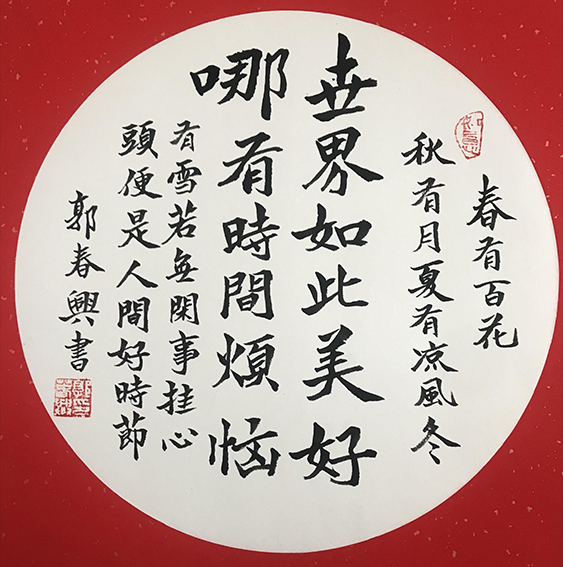 春有百花
秋有月夏有凉風冬
世界如此美好
哪有時間煩恼
有雪若無閑事挂心
頭便是人間好時節
郭春興書